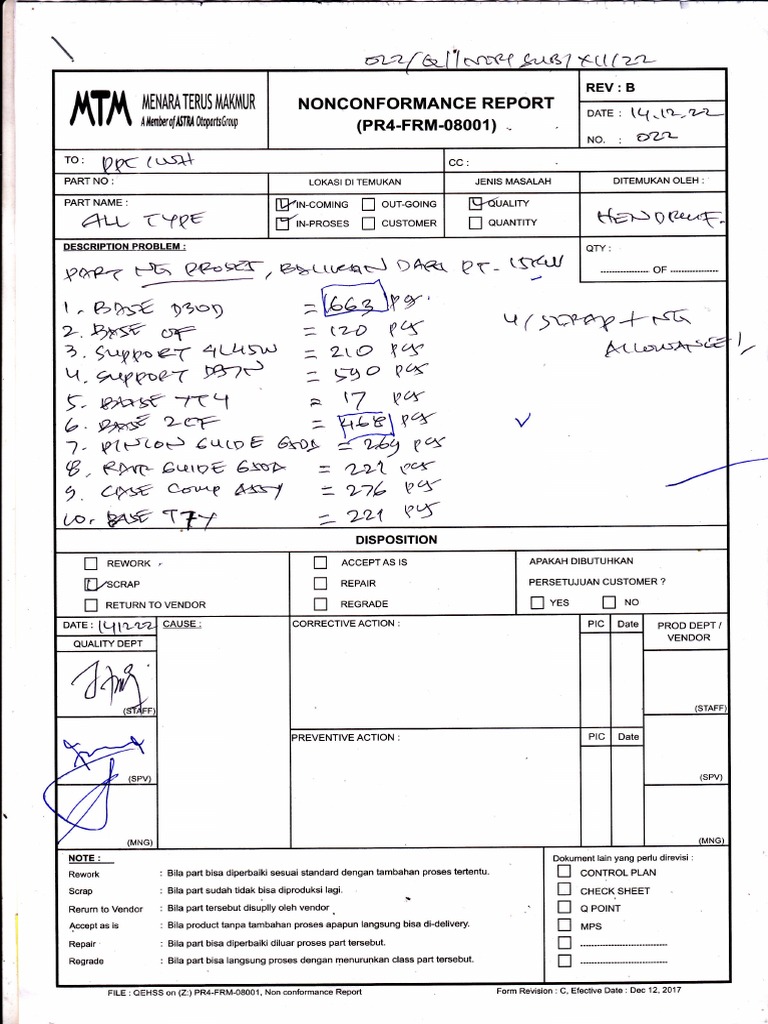 022/Q/NCR SUB/XII/22
MTM MENARA TERUS MAKMUR
A Member of ASTRA Otoparts Group
NONCONFORMANCE REPORT
(PR4-FRM-08001)
REV : B
DATE : 14.12.22
NO. : 022
TO : PPC / WH
CC :
PART NO :
LOKASI DI TEMUKAN
JENIS MASALAH
DITEMUKAN OLEH :
PART NAME :
ALL TYPE
IN-COMING
OUT-GOING
QUALITY
IN-PROSES
CUSTOMER
QUANTITY
DESCRIPTION PROBLEM :
QTY :
OF
PART NG PROSES, BALIKAN DARI PT.
1. BASE D30D = 663 pcs.
2. BASE OF = 120 pcs
3. SUPPORT 4L45W = 210 pcs
4. SUPPORT D37N = 590 pcs
5. BASE TT4 = 17 pcs
6. BASE 2CF = 468 pcs
7. PINION GUIDE = 269 pcs
8. GUIDE = 221 pcs
9. CASE COMP ASSY = 276 pcs
10. BASE T7Y = 221 pcs
U/SCRAP + NG
ALLOWANCE
DISPOSITION
REWORK
ACCEPT AS IS
APAKAH DIBUTUHKAN
SCRAP
REPAIR
PERSETUJUAN CUSTOMER ?
RETURN TO VENDOR
REGRADE
YES
NO
DATE : 141222
CAUSE :
CORRECTIVE ACTION :
PIC
Date
PROD DEPT /
VENDOR
QUALITY DEPT
(STAFF)
(STAFF)
PREVENTIVE ACTION :
PIC
Date
(SPV)
(SPV)
(MNG)
(MNG)
NOTE :
Rework : Bila part bisa diperbaiki sesuai standard dengan tambahan proses tertentu.
Scrap : Bila part sudah tidak bisa diproduksi lagi.
Rerurn to Vendor : Bila part tersebut disuplly oleh vendor
Accept as is : Bila product tanpa tambahan proses apapun langsung bisa di-delivery.
Repair : Bila part bisa diperbaiki diluar proses part tersebut.
Regrade : Bila part bisa langsung proses dengan menurunkan class part tersebut.
Dokument lain yang perlu direvisi :
CONTROL PLAN
CHECK SHEET
Q POINT
MPS
FILE : QEHSS on (Z:) PR4-FRM-08001, Non conformance Report
Form Revision : C, Efective Date : Dec 12, 2017